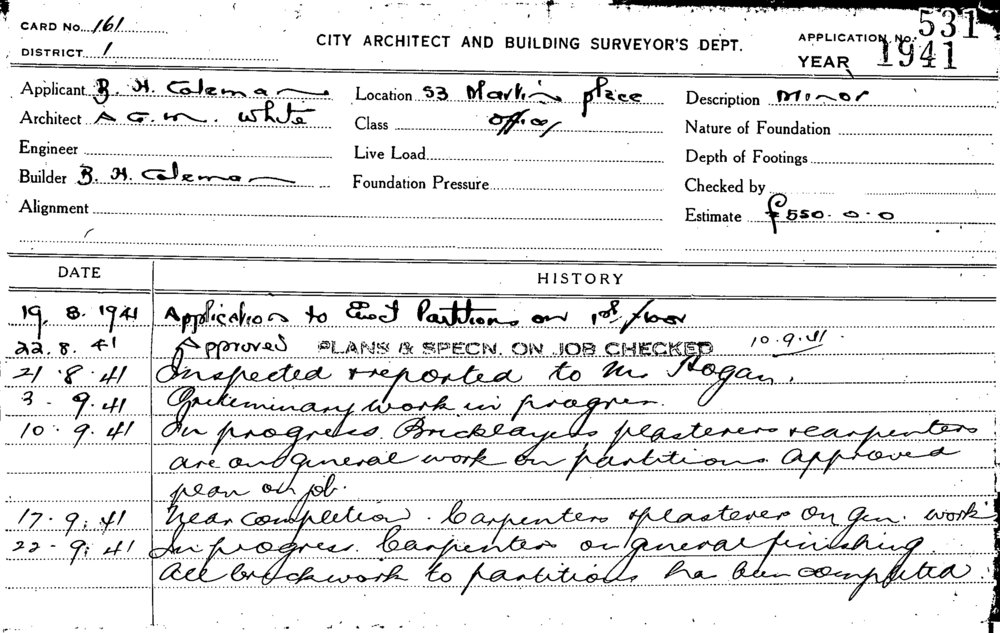 CARD No. 161
DISTRICT 1
CITY ARCHITECT AND BUILDING SURVEYOR'S DEPT.
APPLICATION No. 531
YEAR 1941
Applicant B. H. Coleman Location 53 Martin place Description Minor
Architect A G. M. White Class offices Nature of Foundation
Engineer Live Load Depth of Footings
Builder B. H. Coleman Foundation Pressure Checked by
Alignment Estimate £550.0.0
DATE HISTORY
19. 8. 1941 Application to Erect Partitions on 1st floor
22. 8. 41 Approved PLANS & SPECN. ON JOB CHECKED 10.9.41.
21. 8. 41 Inspected & reported to Mr Hogan.
3. 9. 41 Preliminary work in progress.
10. 9. 41 In progress. Bricklayers plasterers & carpenters
are on general work on partitions. Approved
plan on job.
17. 9. 41 Near completion. Carpenters & plasterer on gen. work
22. 9. 41 In progress. Carpenters on general finishing.
All brickwork to partitions has been completed.